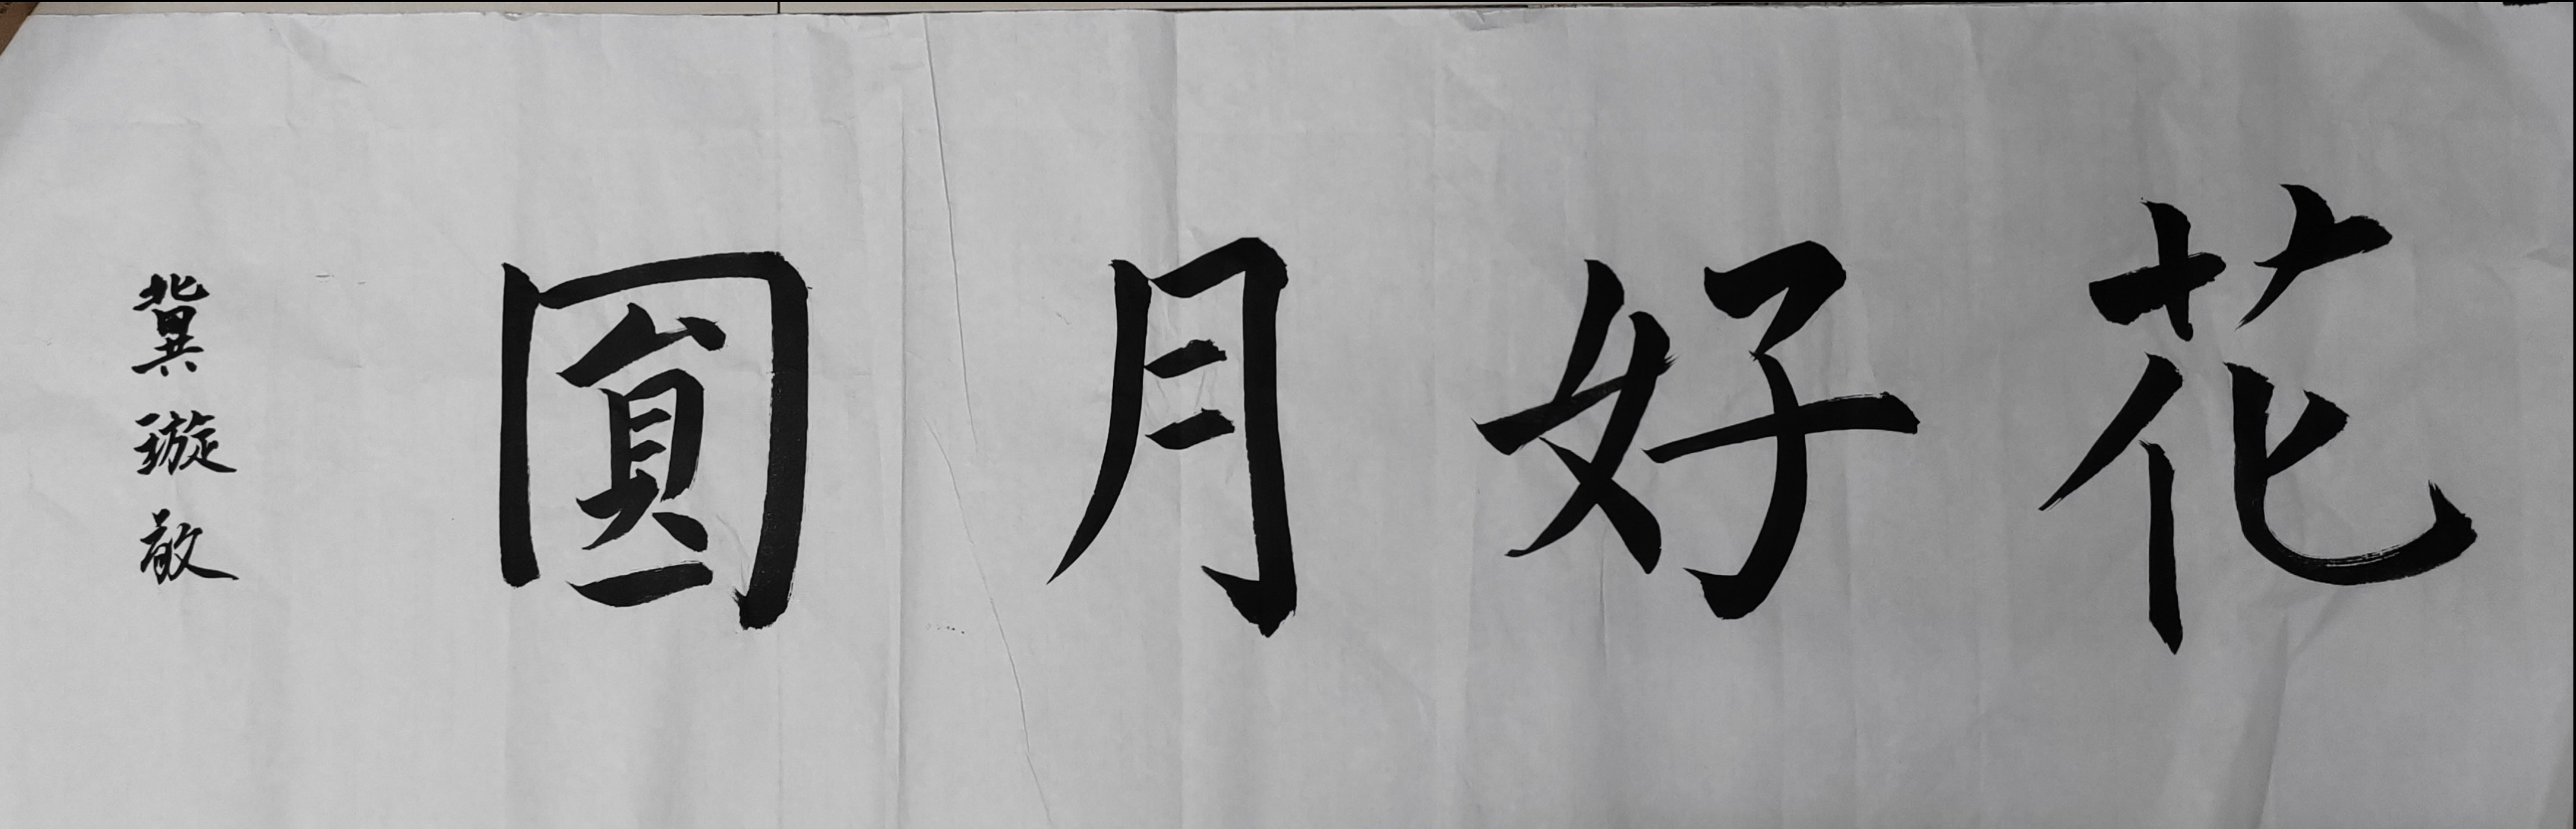 花好月圓
冀璇敬